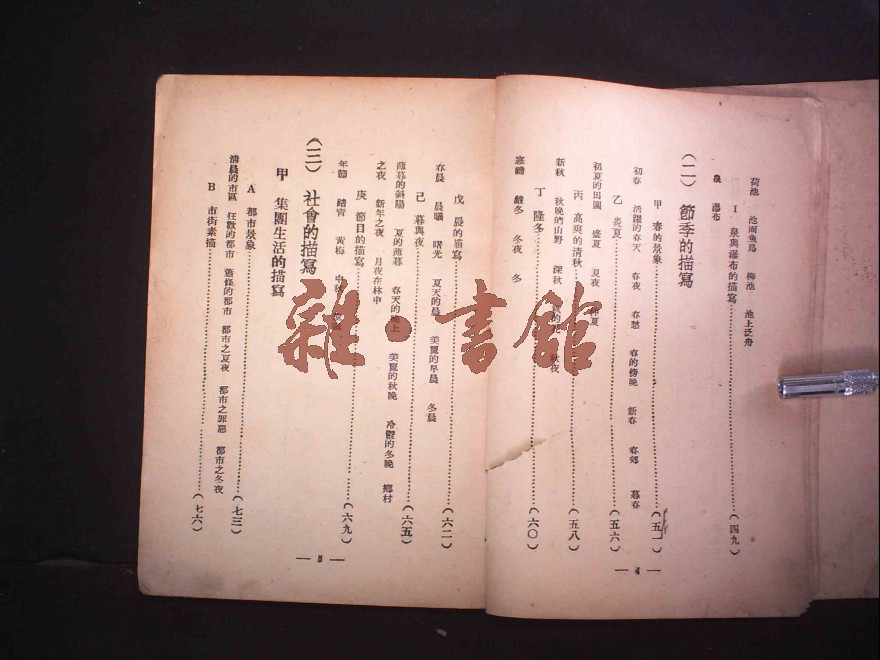 荷池 池面魚鳥 柳池 池上泛舟
I 泉與瀑布的描寫……(四九)
泉 瀑布
(二) 節季的描寫
甲 春的景象……(五一)
初春 活躍的春天 春夜 春愁 春的傍晚 新春 春郊 暮春
乙 炎夏……(五六)
初夏的田園 盛夏 夏夜 夏
丙 高爽的清秋……(五八)
新秋 秋晚的山野 深秋 秋夜
丁 隆冬……(六〇)
寒 嚴冬 冬夜 冬
— 4 —
戊 晨的描寫……(六二)
春晨 晨曦 曙光 夏天的晨 美麗的早晨 冬晨
己 暮與夜……(六五)
薄暮的斜陽 夏的薄暮 春天的晚上 美麗的秋晚 冷靜的冬晚 鄉村
之夜 新年之夜 月夜在林中
庚 節目的描寫……(六九)
年節 踏青 黃梅 中秋
(三) 社會的描寫
甲 集團生活的描寫
A 都市景象……(七三)
清晨的市區 狂歡的都市 蕭條的都市 都市之夏夜 都市之罪惡 都市之冬夜
B 市街素描……(七六)
— 5 —
雜·書館